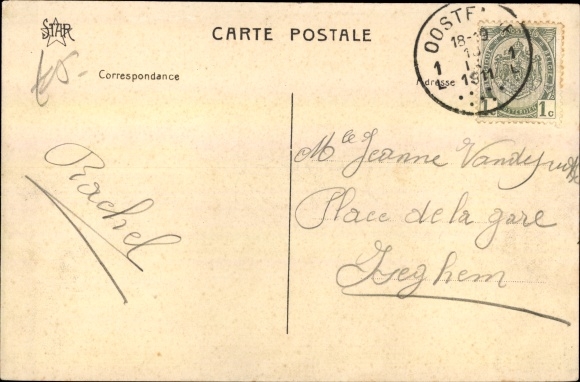 STAR
CARTE POSTALE
Correspondance
Adresse
OOSTE
18-19
1911
1 1
1c 1c
Rachel
Mlle Jeanne
Place de la gare
Iseghem